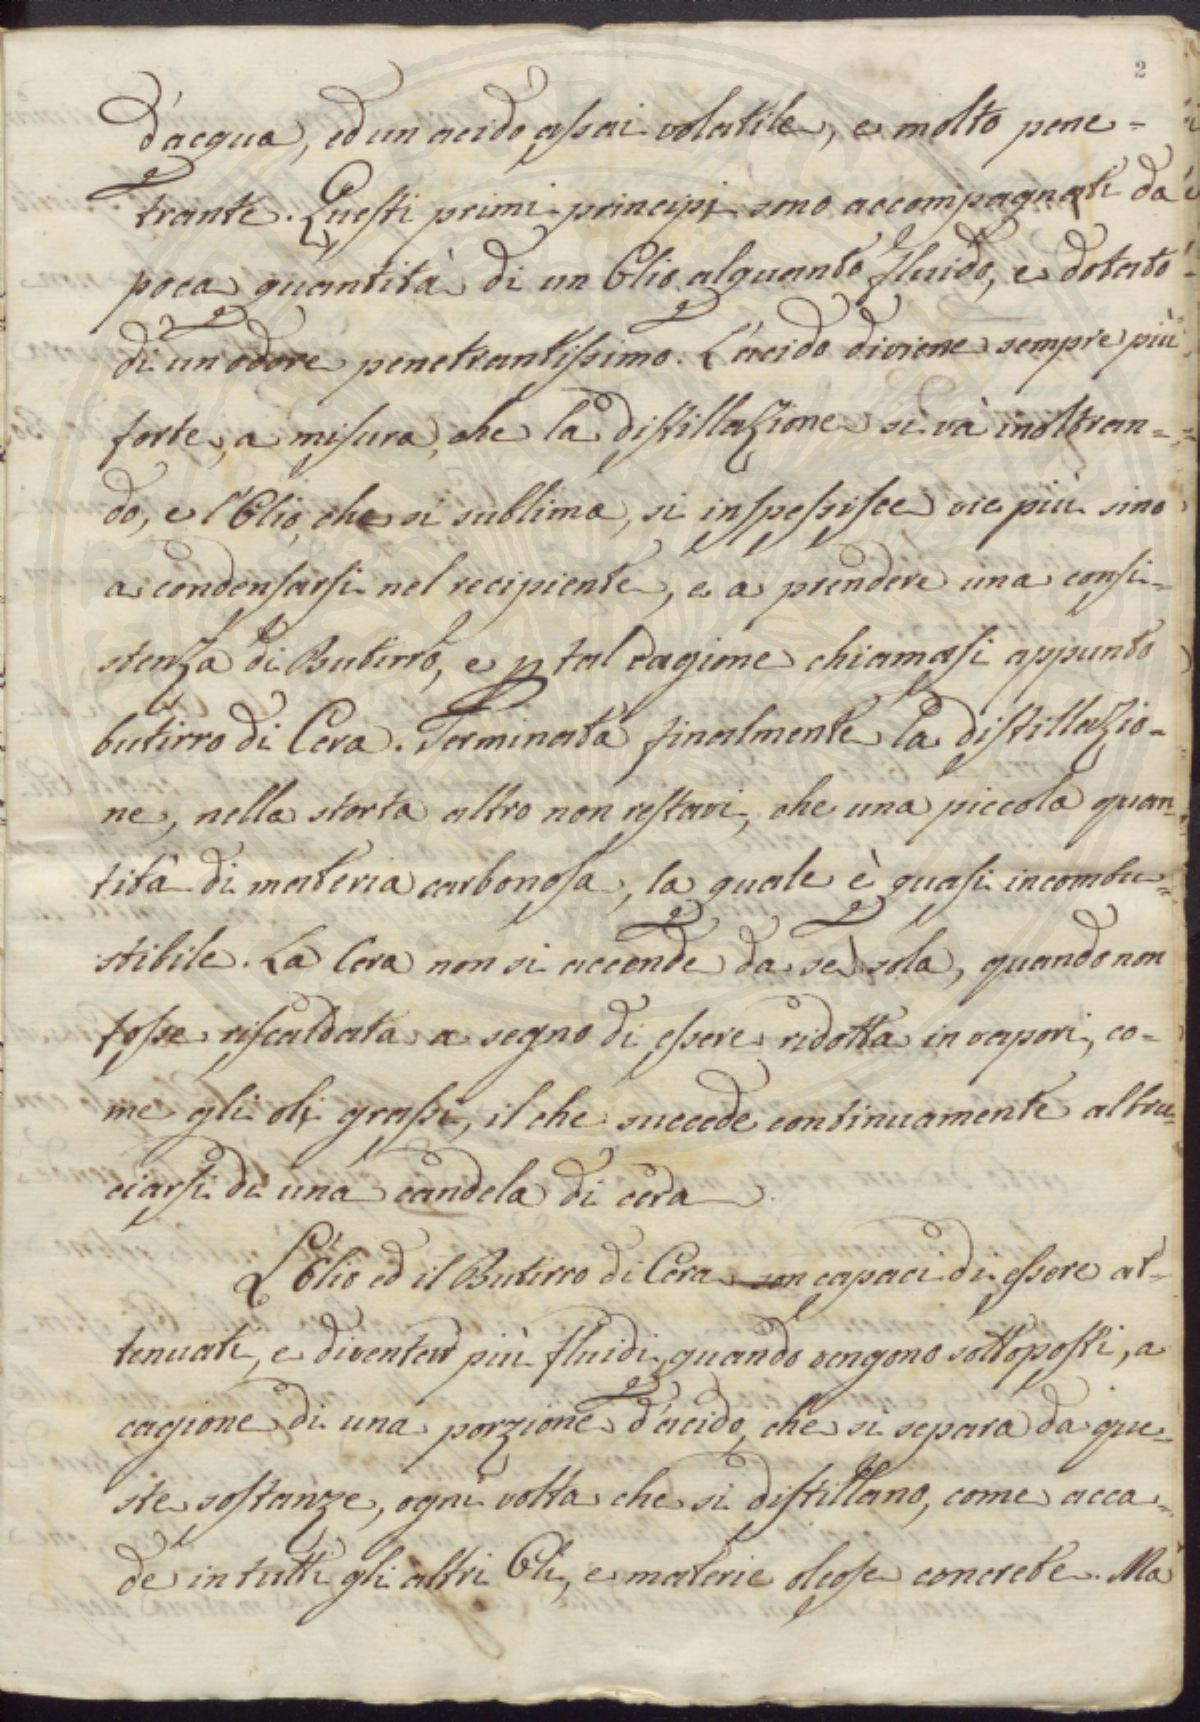 2
d'acqua, ed un acido assai volatile, e molto pene=
trante. Questi primi principj sono accompagnati da
poca quantità di un Olio alquanto fluido, e dotato
di un odore penetrantissimo. L'acido diviene sempre più
forte, a misura, che la distillazione si và inoltran=
do, e l'Olio, che si sublima, si inspessisce vie più sino
a condensarsi nel recipiente, e a prendere una consi=
stenza di Butirro, e p tal cagione chiamasi appunto
butirro di Cera. Terminata finalmente la distillazio=
ne, nella storta altro non restavi, che una piccola quan=
tità di materia carbonosa, la quale è quasi incombu=
stibile. La Cera non si accende da sè sola, quando non
fosse riscaldata a segno di essere ridotta in vapori, co=
me gli olj grassi, il che succede continuamente al bru=
ciarsi di una candela di cera.
L'Olio ed il Butirro di Cera son capaci di essere at=
tenuati, e diventar più fluidi, quando vengono sottoposti, a
cagione di una porzione d'acido, che si separa da que=
ste sostanze, ogni volta che si distillano, come acca=
de in tutti gli altri Olj, e materie oleose concrete. Ma